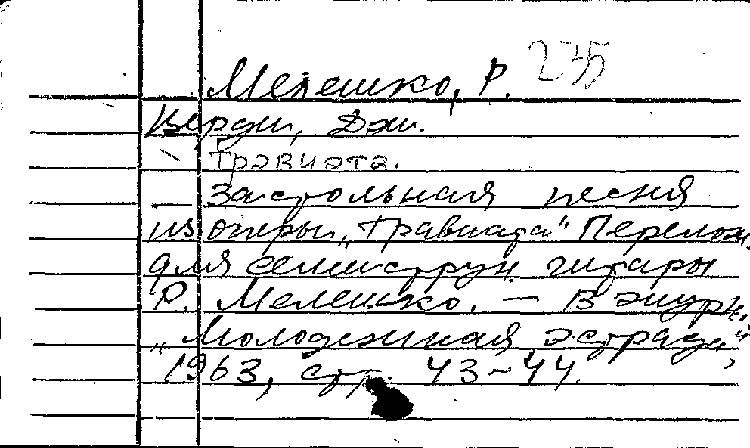 Мелешко, Р. 235
Верди, Дж.
Травиата.
Застольная песня
из оперы „Травиата" Перелож.
для семиструн. гитары
Р. Мелешко. — В журн.
„Молодежная эстрада",
1963, стр. 43-44.